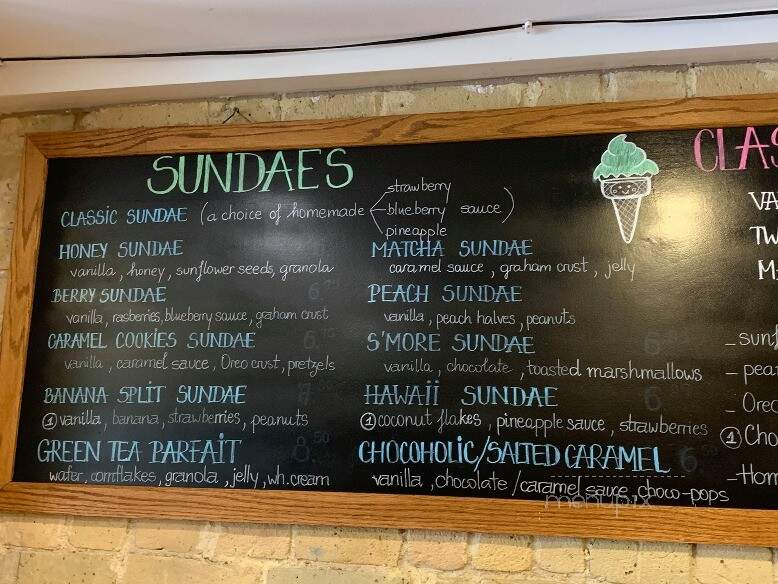 SUNDAES
CLASSIC SUNDAE (a choice of homemade strawberry
blueberry sauce)
pineapple
HONEY SUNDAE
vanilla, honey, sunflower seeds, granola
BERRY SUNDAE
vanilla, rasberries, blueberry sauce, graham crust
CARAMEL COOKIES SUNDAE
vanilla, caramel sauce, Oreo crust, pretzels
BANANA SPLIT SUNDAE
① vanilla, banana, strawberries, peanuts
GREEN TEA PARFAIT 8.50
wafer, cornflakes, granola, jelly, wh.cream
MATCHA SUNDAE
caramel sauce, graham crust, jelly
PEACH SUNDAE
vanilla, peach halves, peanuts
S'MORE SUNDAE
vanilla, chocolate, toasted marshmallows
HAWAII SUNDAE
① coconut flakes, pineapple sauce, strawberries
CHOCOHOLIC/SALTED CARAMEL
vanilla, chocolate/caramel sauce, choco-pops
CLAS
VA
TW
M
- sunf
- pea
- Oreo
① Cho
- Hom
menupix